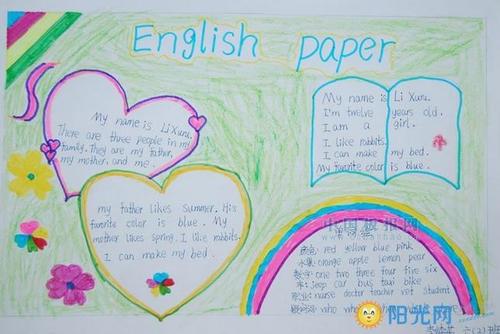 English paper
My name is Li Xuru.
There are three people in my
family. They are my father,
my mother, and me.
my father likes summer. His
favorite color is blue. My
mother likes spring. I like rabbits.
I can make my bed.
My name is Li Xuru.
I'm twelve years old.
I am a girl.
I like rabbits.
I can make my bed.
My favorite color is blue.
中国板报网
red yellow blue pink
水果: orange apple lemon pear
数字: one two three four five six
车: jeep car bus taxi bike
职业: nurse doctor teacher vet student
who
阳光网